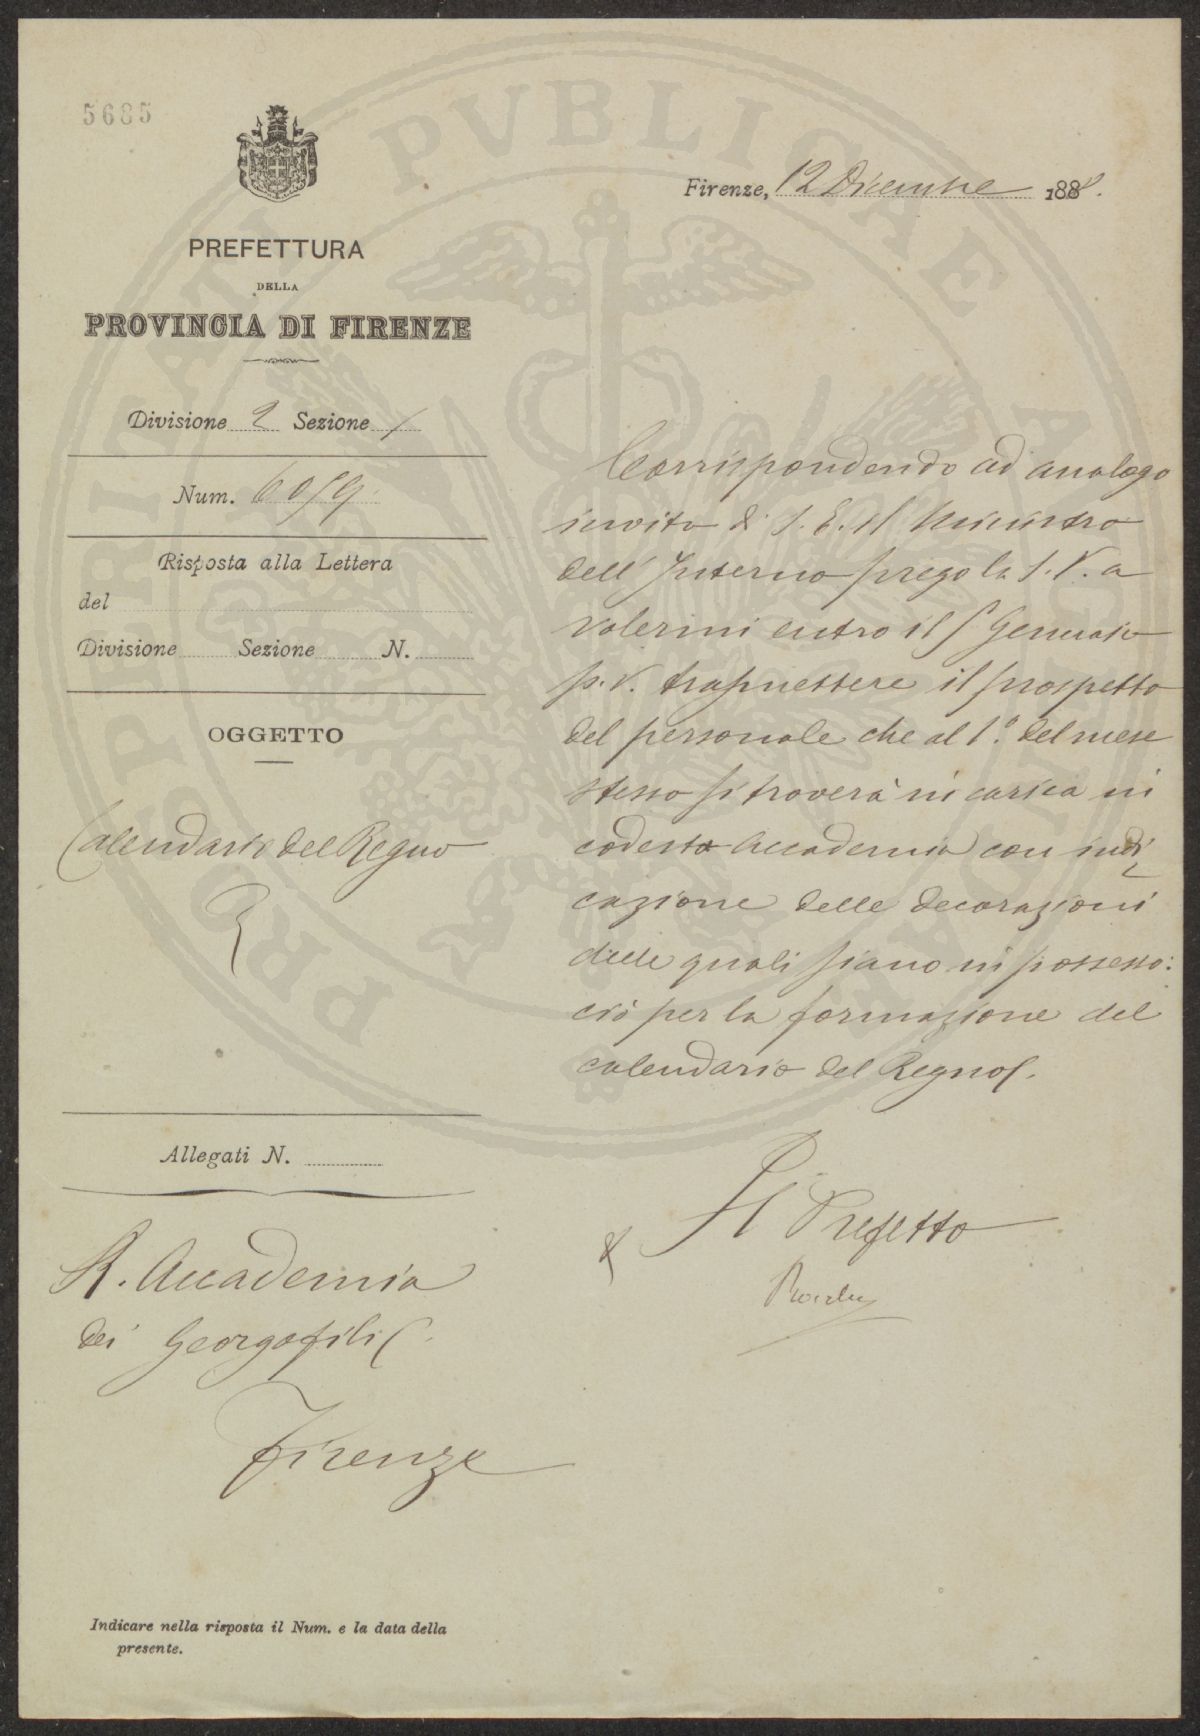 5685
Firenze, 12 Dicembre 188
PREFETTURA
DELLA
PROVINCIA DI FIRENZE
Divisione 2 Sezione 1
Num.
Risposta alla Lettera
del
Divisione Sezione N.
OGGETTO
Calendario del Regno
Allegati N.
R. Accademia
dei Georgofili
Firenze
Indicare nella risposta il Num. e la data della
presente.
Corrispondendo ad analogo
invito di S. E. il Ministro
dell'Interno prego la S. V. a
volermi entro il 5 Gennaio
p. v. trasmettere il prospetto
del personale che al 1.° del mese
stesso si troverà in carica in
codesta Accademia con indi
cazione delle decorazioni
delle quali siano in possesso:
ciò per la formazione del
calendario del Regno.
Il Prefetto
PROSPERITATI PVBLICAE AVGENDAE